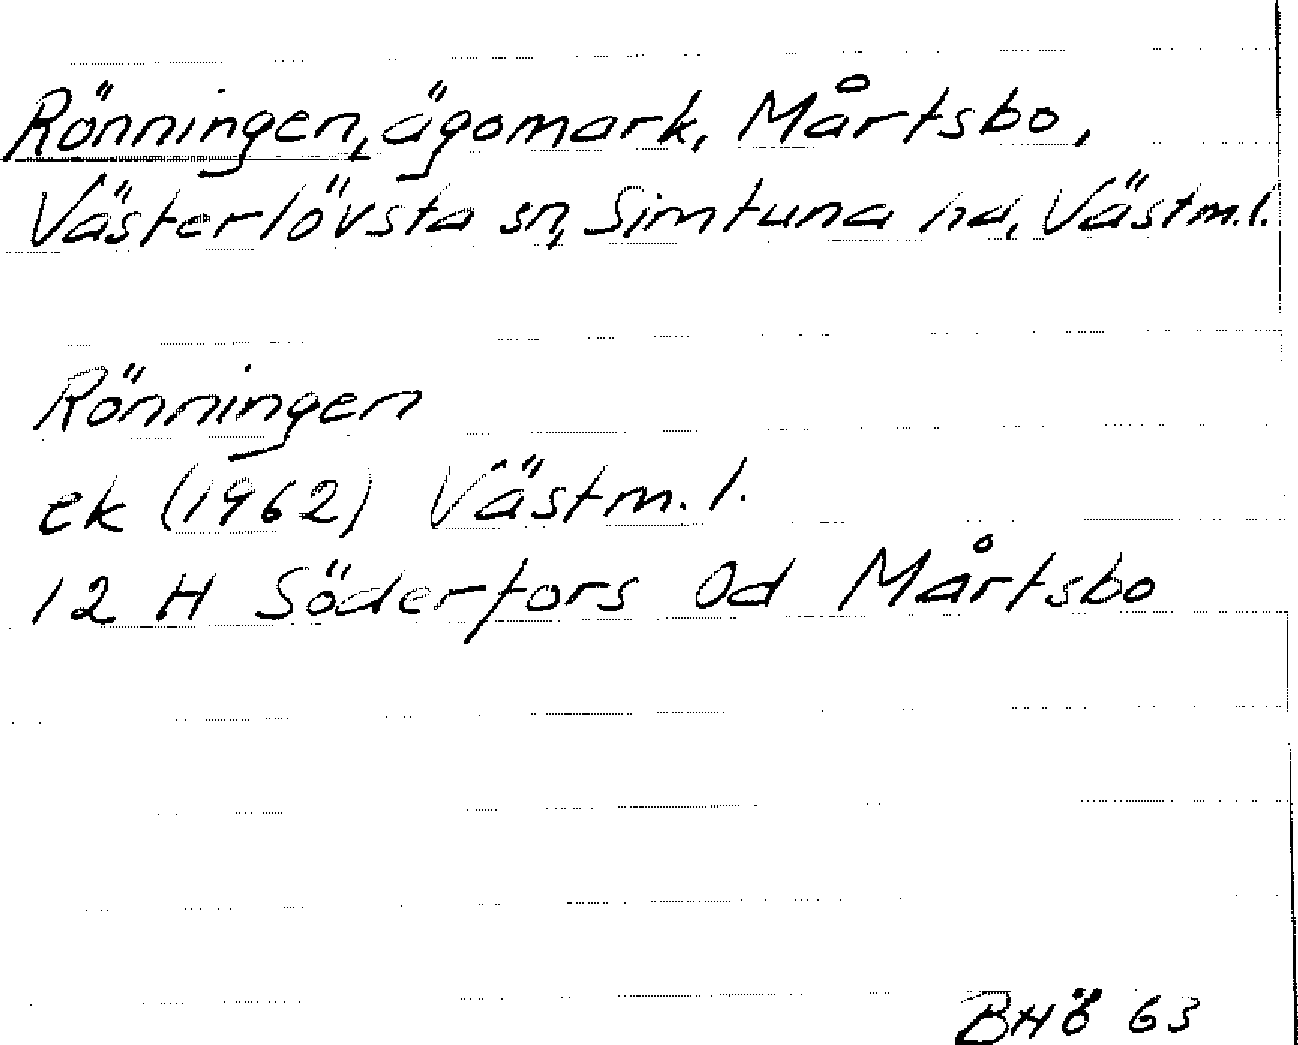 Rönningen, ägomark, Mårtsbo,
Västerlövsta sn, Simtuna hd, Västm.l.
Rönningen
ek (1962) Västm.l.
12 H Söderfors 0d Mårtsbo
BHÖ 63